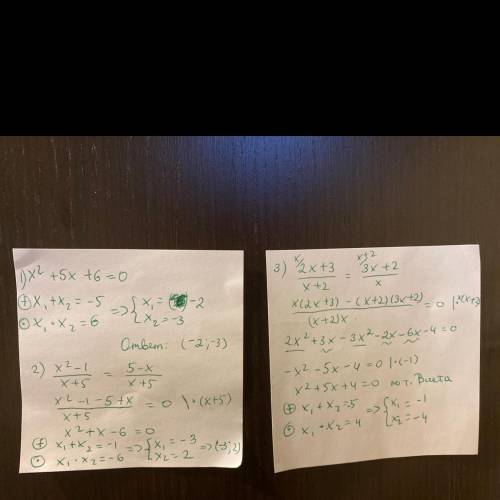 1) x² + 5x + 6 = 0
⊕ x₁ + x₂ = -5
⊙ x₁ · x₂ = 6
=> { x₁ = -2
x₂ = -3
Ответ: (-2; -3)
2) (x² - 1)/(x + 5) = (5 - x)/(x + 5)
(x² - 1 - 5 + x)/(x + 5) = 0 \ · (x + 5)
x² + x - 6 = 0
⊕ x₁ + x₂ = -1
⊙ x₁ · x₂ = -6
=> { x₁ = -3
x₂ = 2
=> (-3; 2)
3) ˣ⁄ (2x + 3)/(x + 2) = ˣ⁺²⁄ (3x + 2)/x
(x(2x + 3) - (x + 2)(3x + 2))/((x + 2)x) = 0
2x² + 3x - 3x² - 2x - 6x - 4 = 0
-x² - 5x - 4 = 0 | · (-1)
x² + 5x + 4 = 0 по т. Виета
⊕ x₁ + x₂ = -5
⊙ x₁ · x₂ = 4
=> { x₁ = -1
x₂ = -4